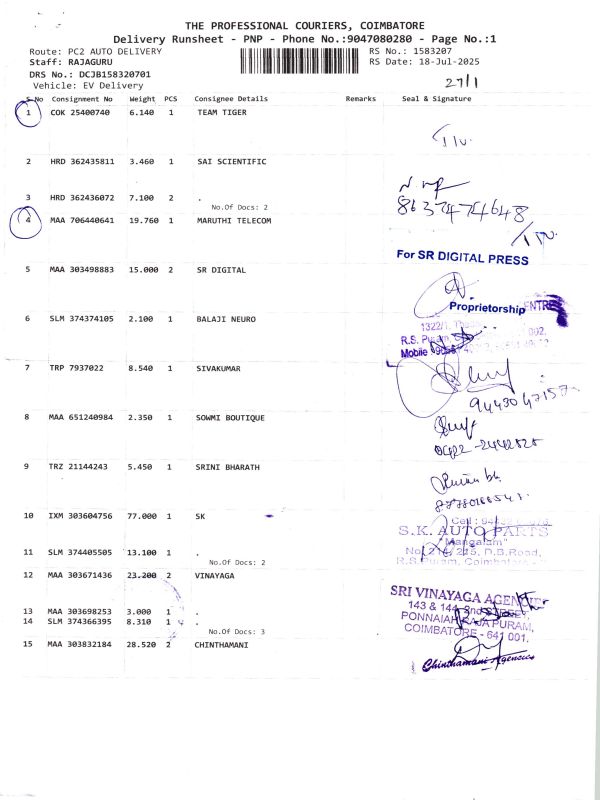 THE PROFESSIONAL COURIERS, COIMBATORE
Delivery Runsheet - PNP - Phone No.:9047080280 - Page No.:1
Route: PC2 AUTO DELIVERY RS No.: 1583207
Staff: RAJAGURU RS Date: 18-Jul-2025
DRS No.: DCJB158320701
Vehicle: EV Delivery
27/1
S No Consignment No Weight PCS Consignee Details Remarks Seal & Signature
1 COK 25400740 6.140 1 TEAM TIGER
2 HRD 362435811 3.460 1 SAI SCIENTIFIC
3 HRD 362436072 7.100 2 .
No.Of Docs: 2
86374774648
4 MAA 706440641 19.760 1 MARUTHI TELECOM
For SR DIGITAL PRESS
5 MAA 303498883 15.000 2 SR DIGITAL
Proprietorship
6 SLM 374374105 2.100 1 BALAJI NEURO
1322/1,
R.S. Puram,
Mobile
7 TRP 7937022 8.540 1 SIVAKUMAR
8 MAA 651240984 2.350 1 SOWMI BOUTIQUE
0422-2442525
9 TRZ 21144243 5.450 1 SRINI BHARATH
10 IXM 303604756 77.000 1 SK
S.K. AUTO PARTS
"Mangalam"
No. 214/ 215, D.B.Road,
R.S.Puram, Coimbatore
11 SLM 374405505 13.100 1 .
No.Of Docs: 2
12 MAA 303671436 23.200 2 VINAYAGA
SRI VINAYAGA AGENCIES
143 & 144, 2nd STREET,
PONNAIAH RAJA PURAM,
COIMBATORE - 641 001.
13 MAA 303698253 3.000 1 .
14 SLM 374366395 8.310 1 .
No.Of Docs: 3
15 MAA 303832184 28.520 2 CHINTHAMANI
Chinthamani Agencies